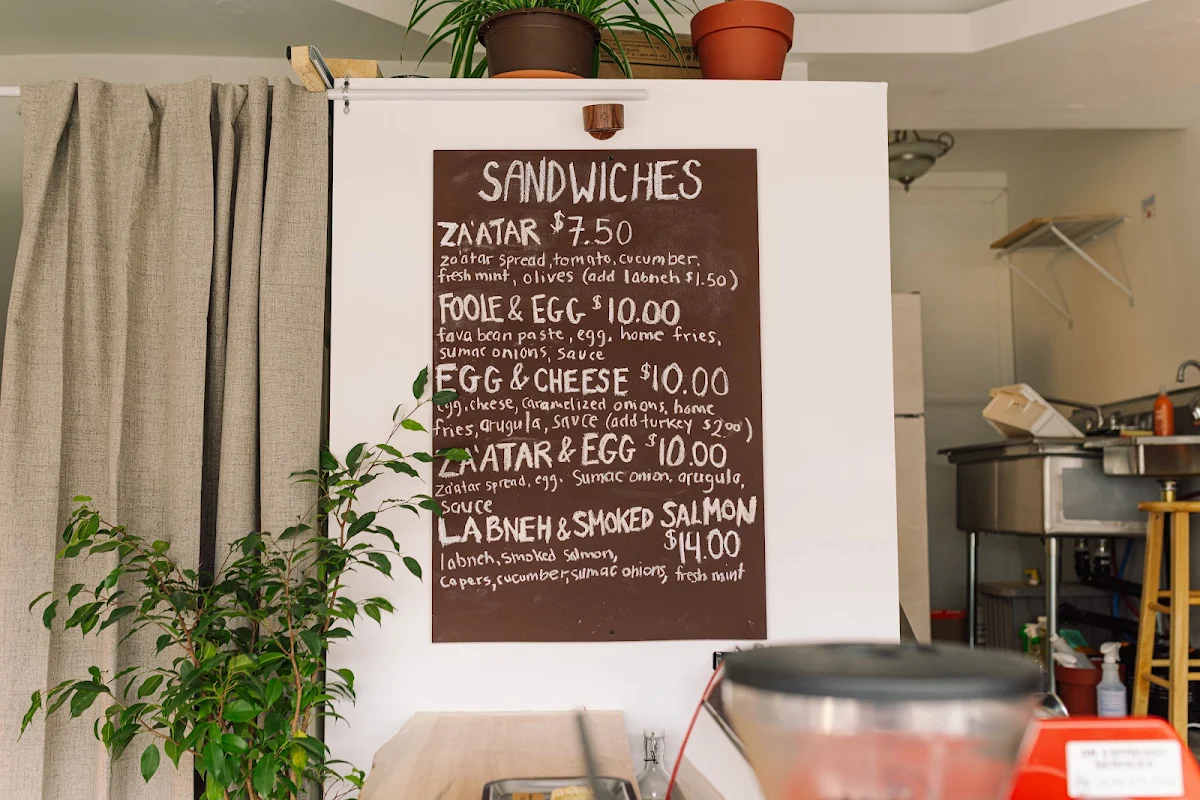 SANDWICHES
ZA'ATAR $7.50
za'atar spread, tomato, cucumber,
fresh mint, olives (add labneh $1.50)
FOOLE & EGG $10.00
fava bean paste, egg, home fries,
sumac onions, sauce
EGG & CHEESE $10.00
egg, cheese, caramelized onions, home
fries, arugula, sauce (add turkey $2.00)
ZA'ATAR & EGG $10.00
za'atar spread, egg. Sumac onion, arugula,
sauce
LABNEH & SMOKED SALMON
$14.00
labneh, smoked salmon,
capers, cucumber, sumac onions, fresh mint